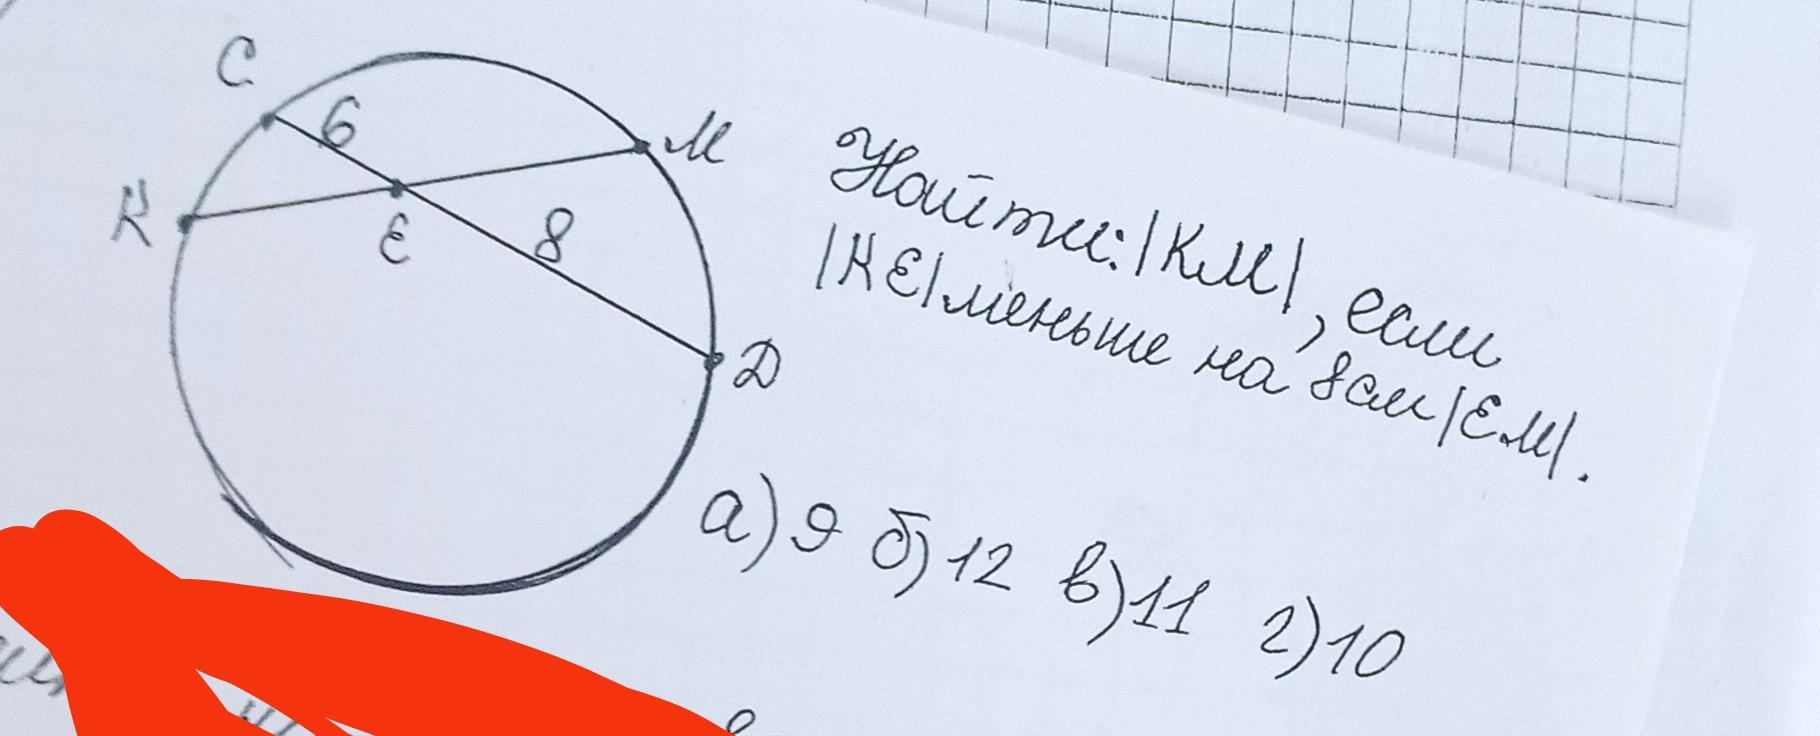 C
6
M
K
E
8
D
Найти: |KM|, если
|KE| меньше на 8см |EM|.
а) 9 б) 12 в) 11 г) 10